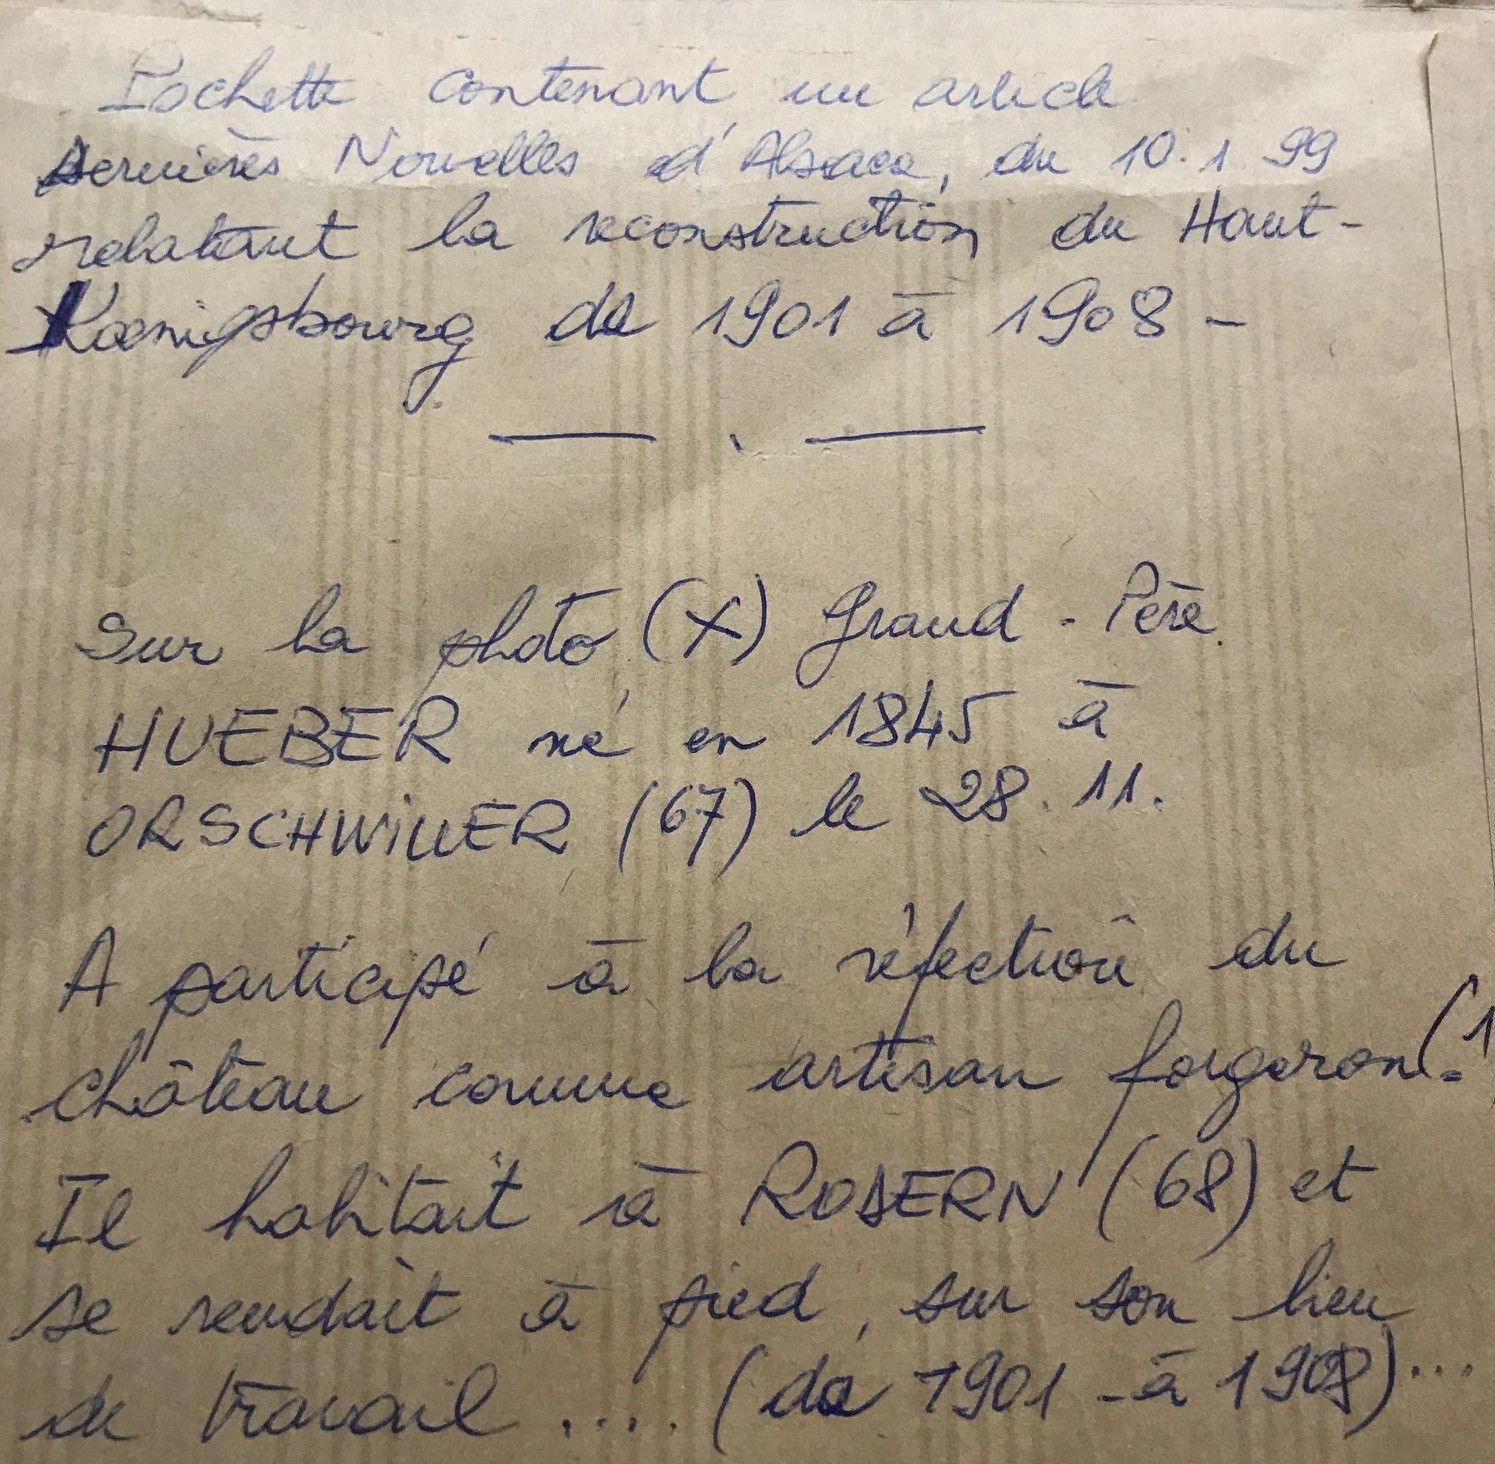 Pochette contenant un article
Dernières Nouvelles d'Alsace, du 10.1.99
relatant la reconstruction du Haut-
Kœnigsbourg de 1901 à 1908 -
— . —
Sur la photo (X) Grand-Père
HUEBER né en 1845 à
ORSCHWILLER (67) le 28.11.
A participé à la réfection du
château comme artisan forgeron. (1
Il habitait à RODERN (68) et
se rendait à pied, sur son lieu
de travail .... (de 1901 - à 1908)...